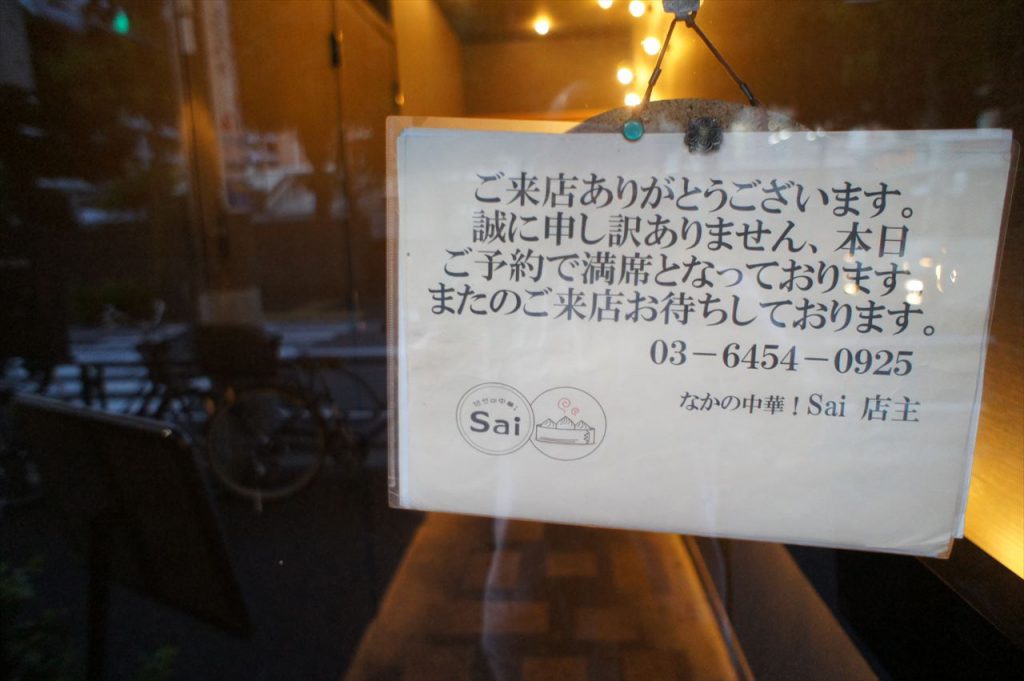 ご来店ありがとうございます。
誠に申し訳ありません、本日
ご予約で満席となっております
またのご来店お待ちしております。
03-6454-0925
なかの中華！Sai 店主
Sai